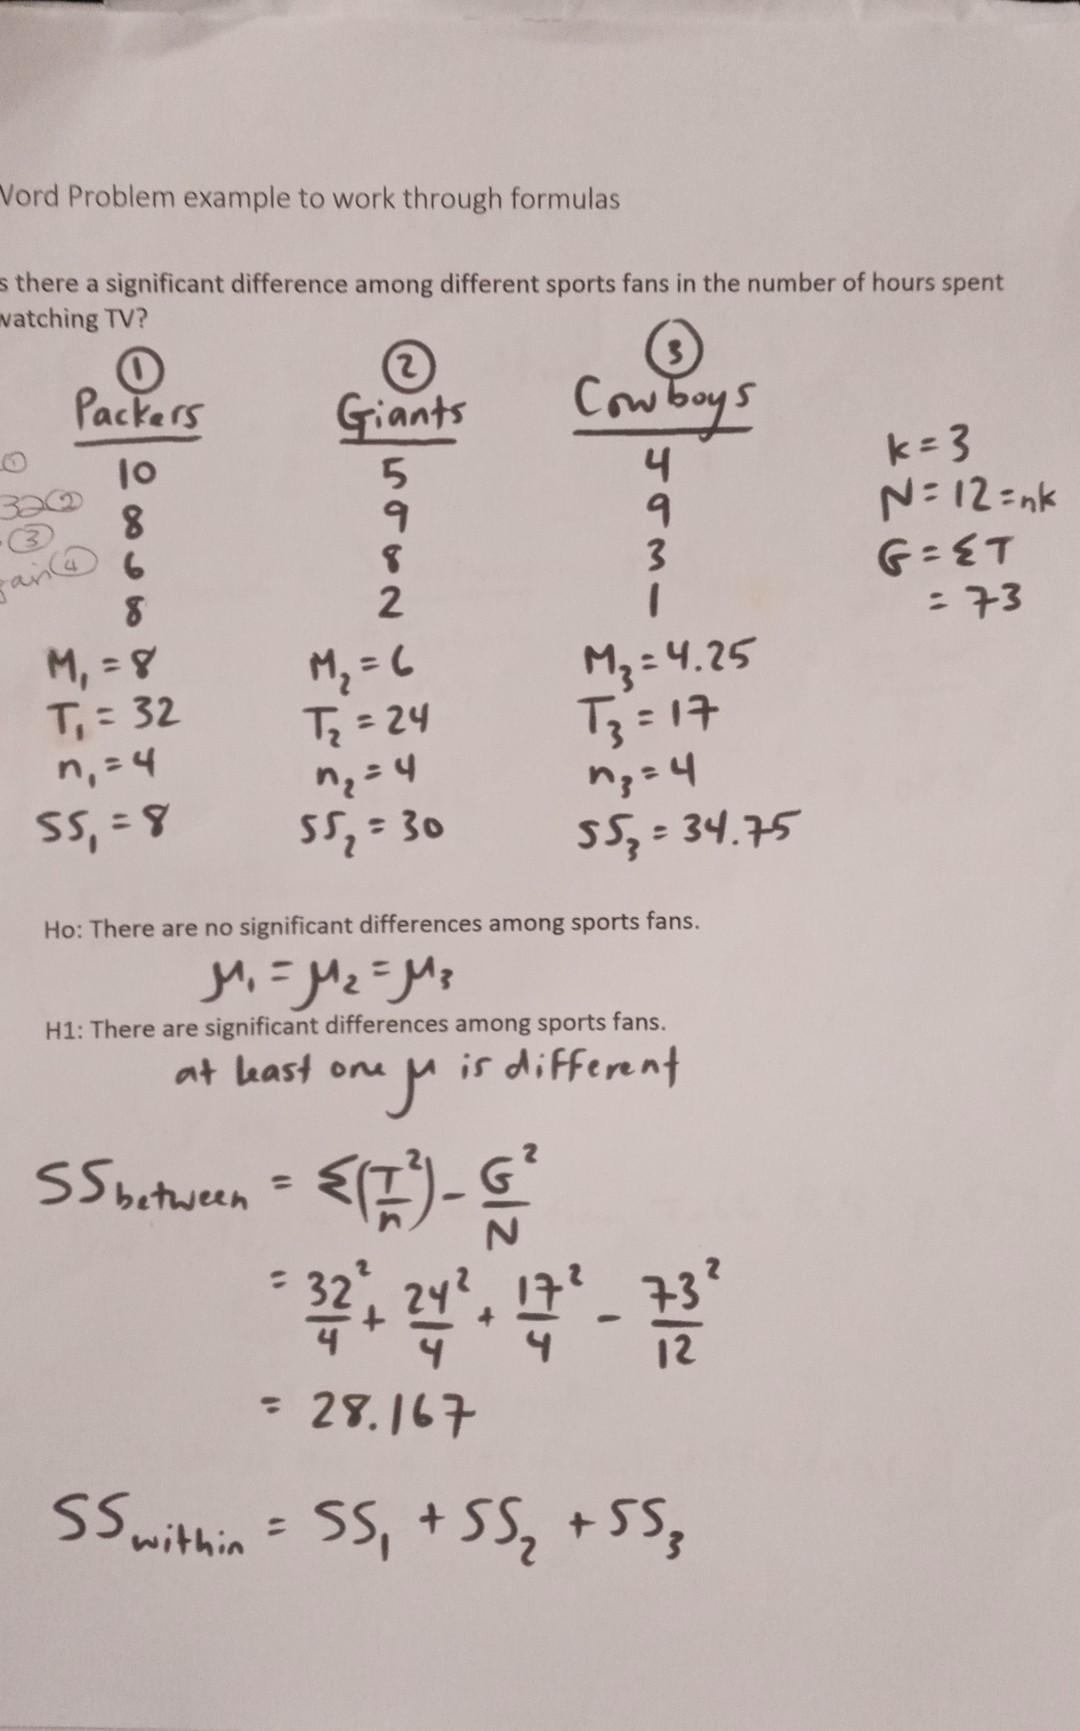 Word Problem example to work through formulas
s there a significant difference among different sports fans in the number of hours spent
watching TV?
① ② ③
Packers Giants Cowboys
10 5 4
8 9 9
6 8 3
8 2 1
k = 3
N = 12 = nk
G = ΣT
= 73
① 
32 ②
③
④
M₁ = 8 M₂ = 6 M₃ = 4.25
T₁ = 32 T₂ = 24 T₃ = 17
n₁ = 4 n₂ = 4 n₃ = 4
SS₁ = 8 SS₂ = 30 SS₃ = 34.75
Ho: There are no significant differences among sports fans.
μ₁ = μ₂ = μ₃
H1: There are significant differences among sports fans.
at least one μ is different
SS between = Σ(T²/n) - G²/N
= 32²/4 + 24²/4 + 17²/4 - 73²/12
= 28.167
SS within = SS₁ + SS₂ + SS₃